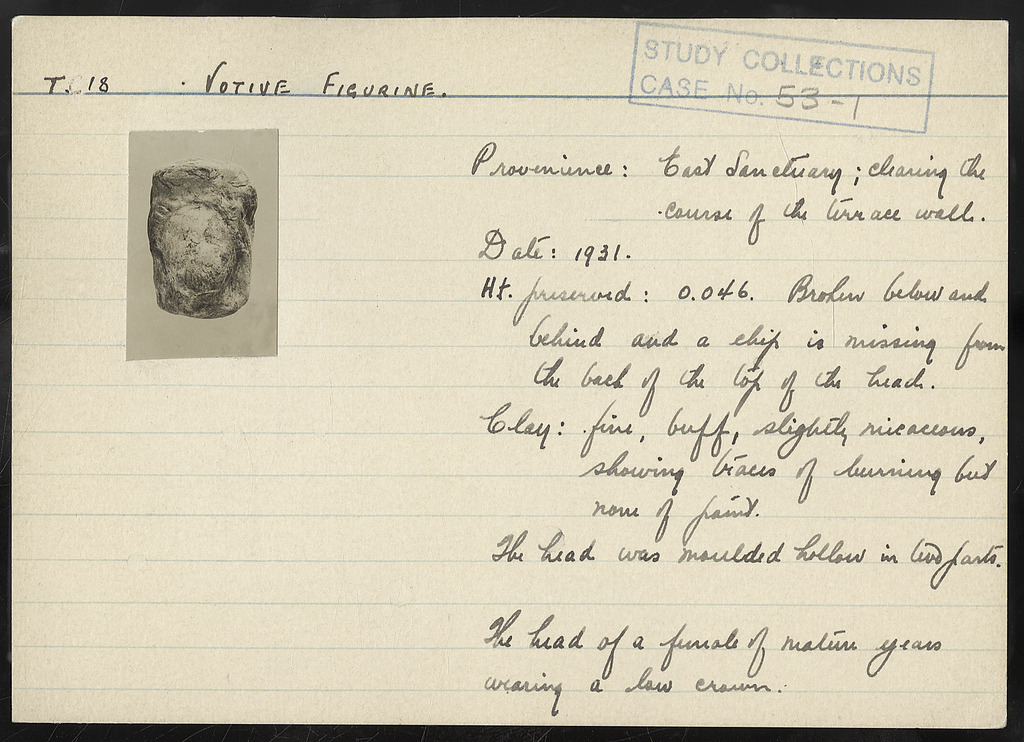 STUDY COLLECTIONS
CASE No. 53-1
T.C 18 . VOTIVE FIGURINE.
Provenience: East Sanctuary; clearing the
course of the terrace wall.
Date: 1931.
Ht. preserved: 0.046. Broken below and
behind and a chip is missing from
the back of the top of the head.
Clay: fine, buff, slightly micaceous,
showing traces of burning but
none of paint.
The head was moulded hollow in two parts.
The head of a female of mature years
wearing a low crown.